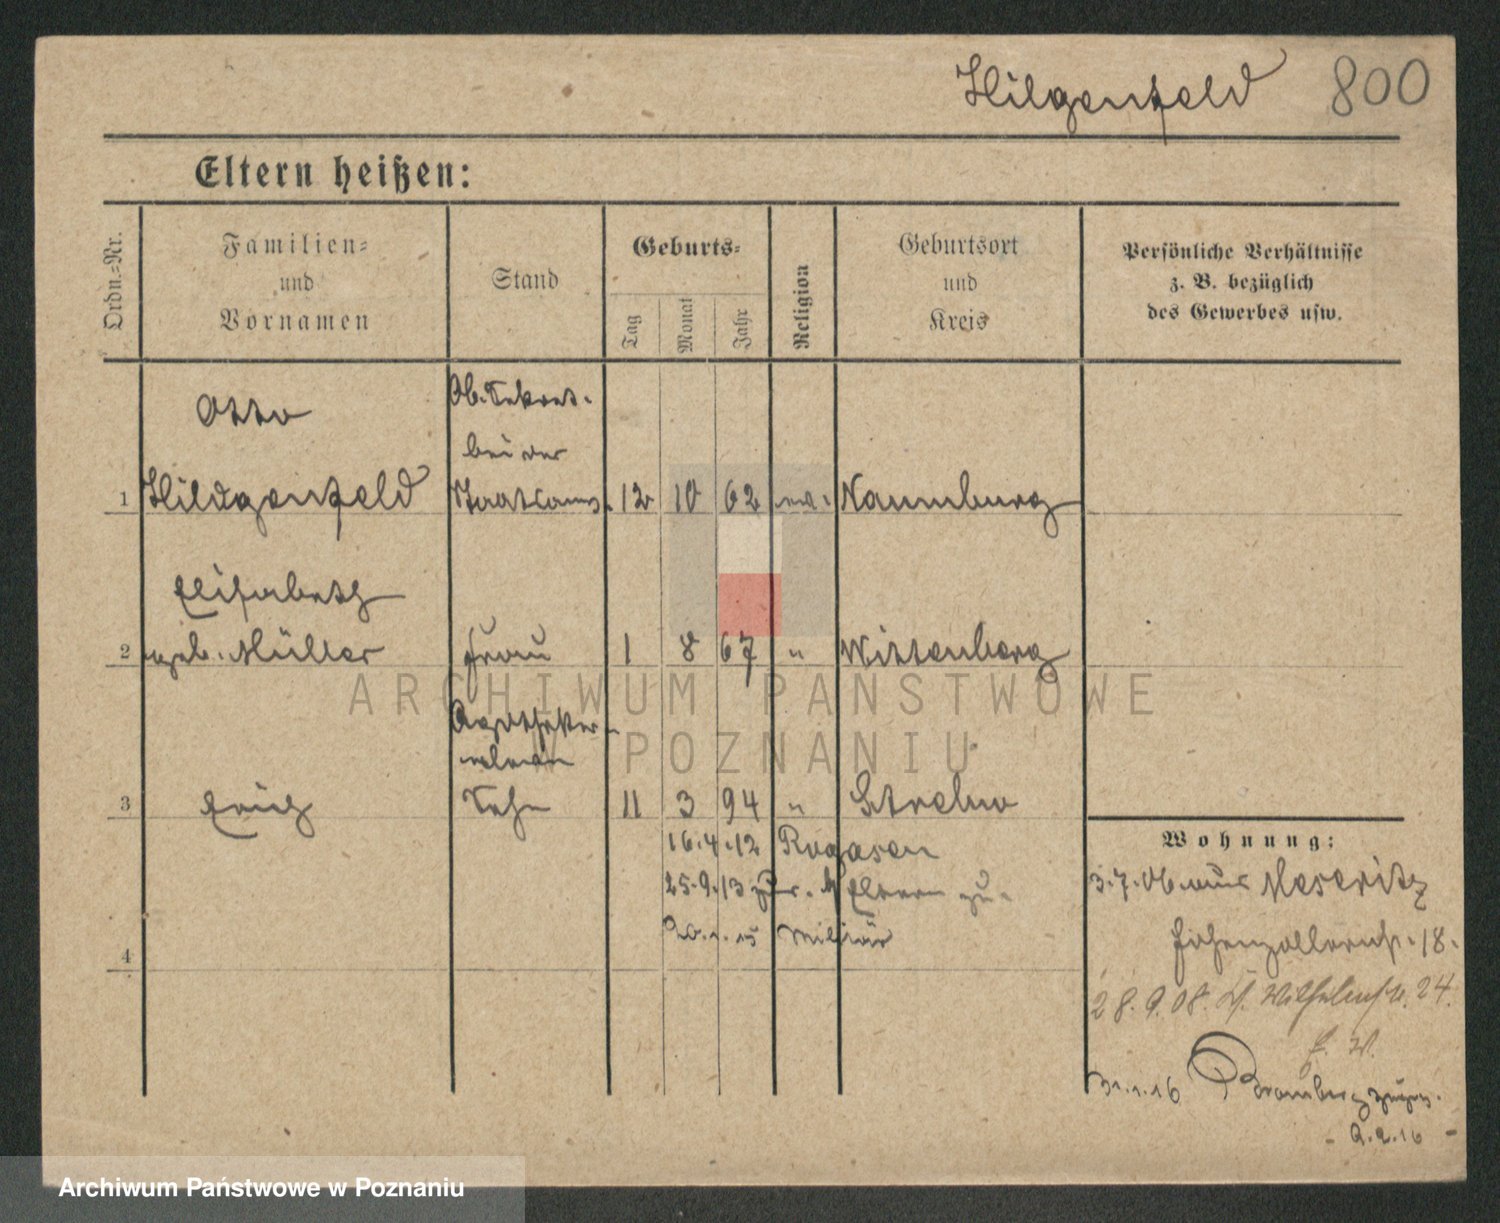 Hilgenfeld 800
Eltern heißen:
Ordn.-Nr.
Familien-
und
Vornamen
Stand
Geburts-
Tag
Monat
Jahr
Religion
Geburtsort
und
Kreis
Persönliche Verhältnisse
z. B. bezüglich
des Gewerbes usw.
Otto
Ob. Sekret.
bei der
1 Hildgenfeld Staatsanw. 12 10 62 ev. Naumburg
Elisabeth
2 geb. Müller Frau 1 8 67 " Wittenberg
Apotheker-
eleve
3 Erich Sohn 11 3 94 " Strelno
16.4.12 Rogasen
25.9.13 zur. Eltern zu-
20.1.15 Militär
4
Wohnung:
3.7.06 aus Meseritz
Hohenzollernstr. 18.
28.9.08. Wilhelmstr. 24.
31.1.16 Bromberg
- 2.2.16 -
ARCHIWUM PAŃSTWOWE
W POZNANIU
Archiwum Państwowe w Poznaniu